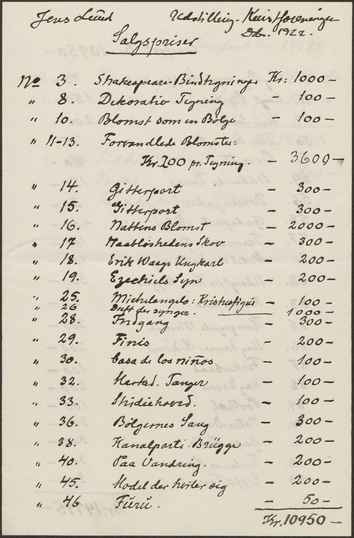 Jens Lund Udstilling - Kunstforeningen
Dbr. 1922.
Salgspriser
No 3. Shakespeare-Bindtegninger Kr: 1000 -
" 8. Dekorativ Tegning - 100 -
" 10. Blomst som en Bölge - 100 -
" 11-13. Forvandlede Blomster:
Kr. 200 pr. Tegning. - 3600 -
" 14. Gitterport - 300 -
" 15. Gitterport - 300 -
" 16. Nattens Blomst - 2000 -
" 17 Skov - 300 -
" 18. Erik Waage Ungkarl - 200 -
" 19. Ezechiels Syn - 200 -
" 25. Michelangelo: Kristusfigur - 100 -
" 26 Duft der synger. - 1000 -
" 28. Indgang - 300 -
" 29. Finis - 200 -
" 30. Casa de los niños. - 100 -
" 32. Marked. Tanger - 100 -
" 33. - 100 -
" 36. Bölgernes Sang - 300 -
" 38. Kanalparti Brügge - 200 -
" 40. Paa Vandring. - 200 -
" 45. Model der hviler sig - 200 -
" 46 Furu. - 50 -
Kr. 10950 -